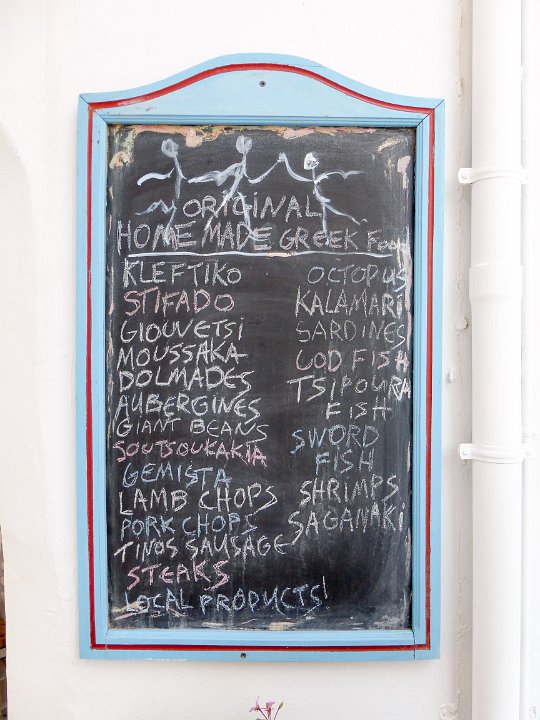 ORIGINAL
HOME MADE GREEK Food
KLEFTIKO
STIFADO
GIOUVETSI
MOUSSAKA
DOLMADES
AUBERGINES
GIANT BEANS
SOUTSOUKAKIA
GEMISTA
LAMB CHOPS
PORK CHOPS
TINOS SAUSAGE
STEAKS
LOCAL PRODUCTS!
OCTOPUS
KALAMARI
SARDINES
COD FISH
TSIPOURA
FISH
SWORD
FISH
SHRIMPS
SAGANAKI